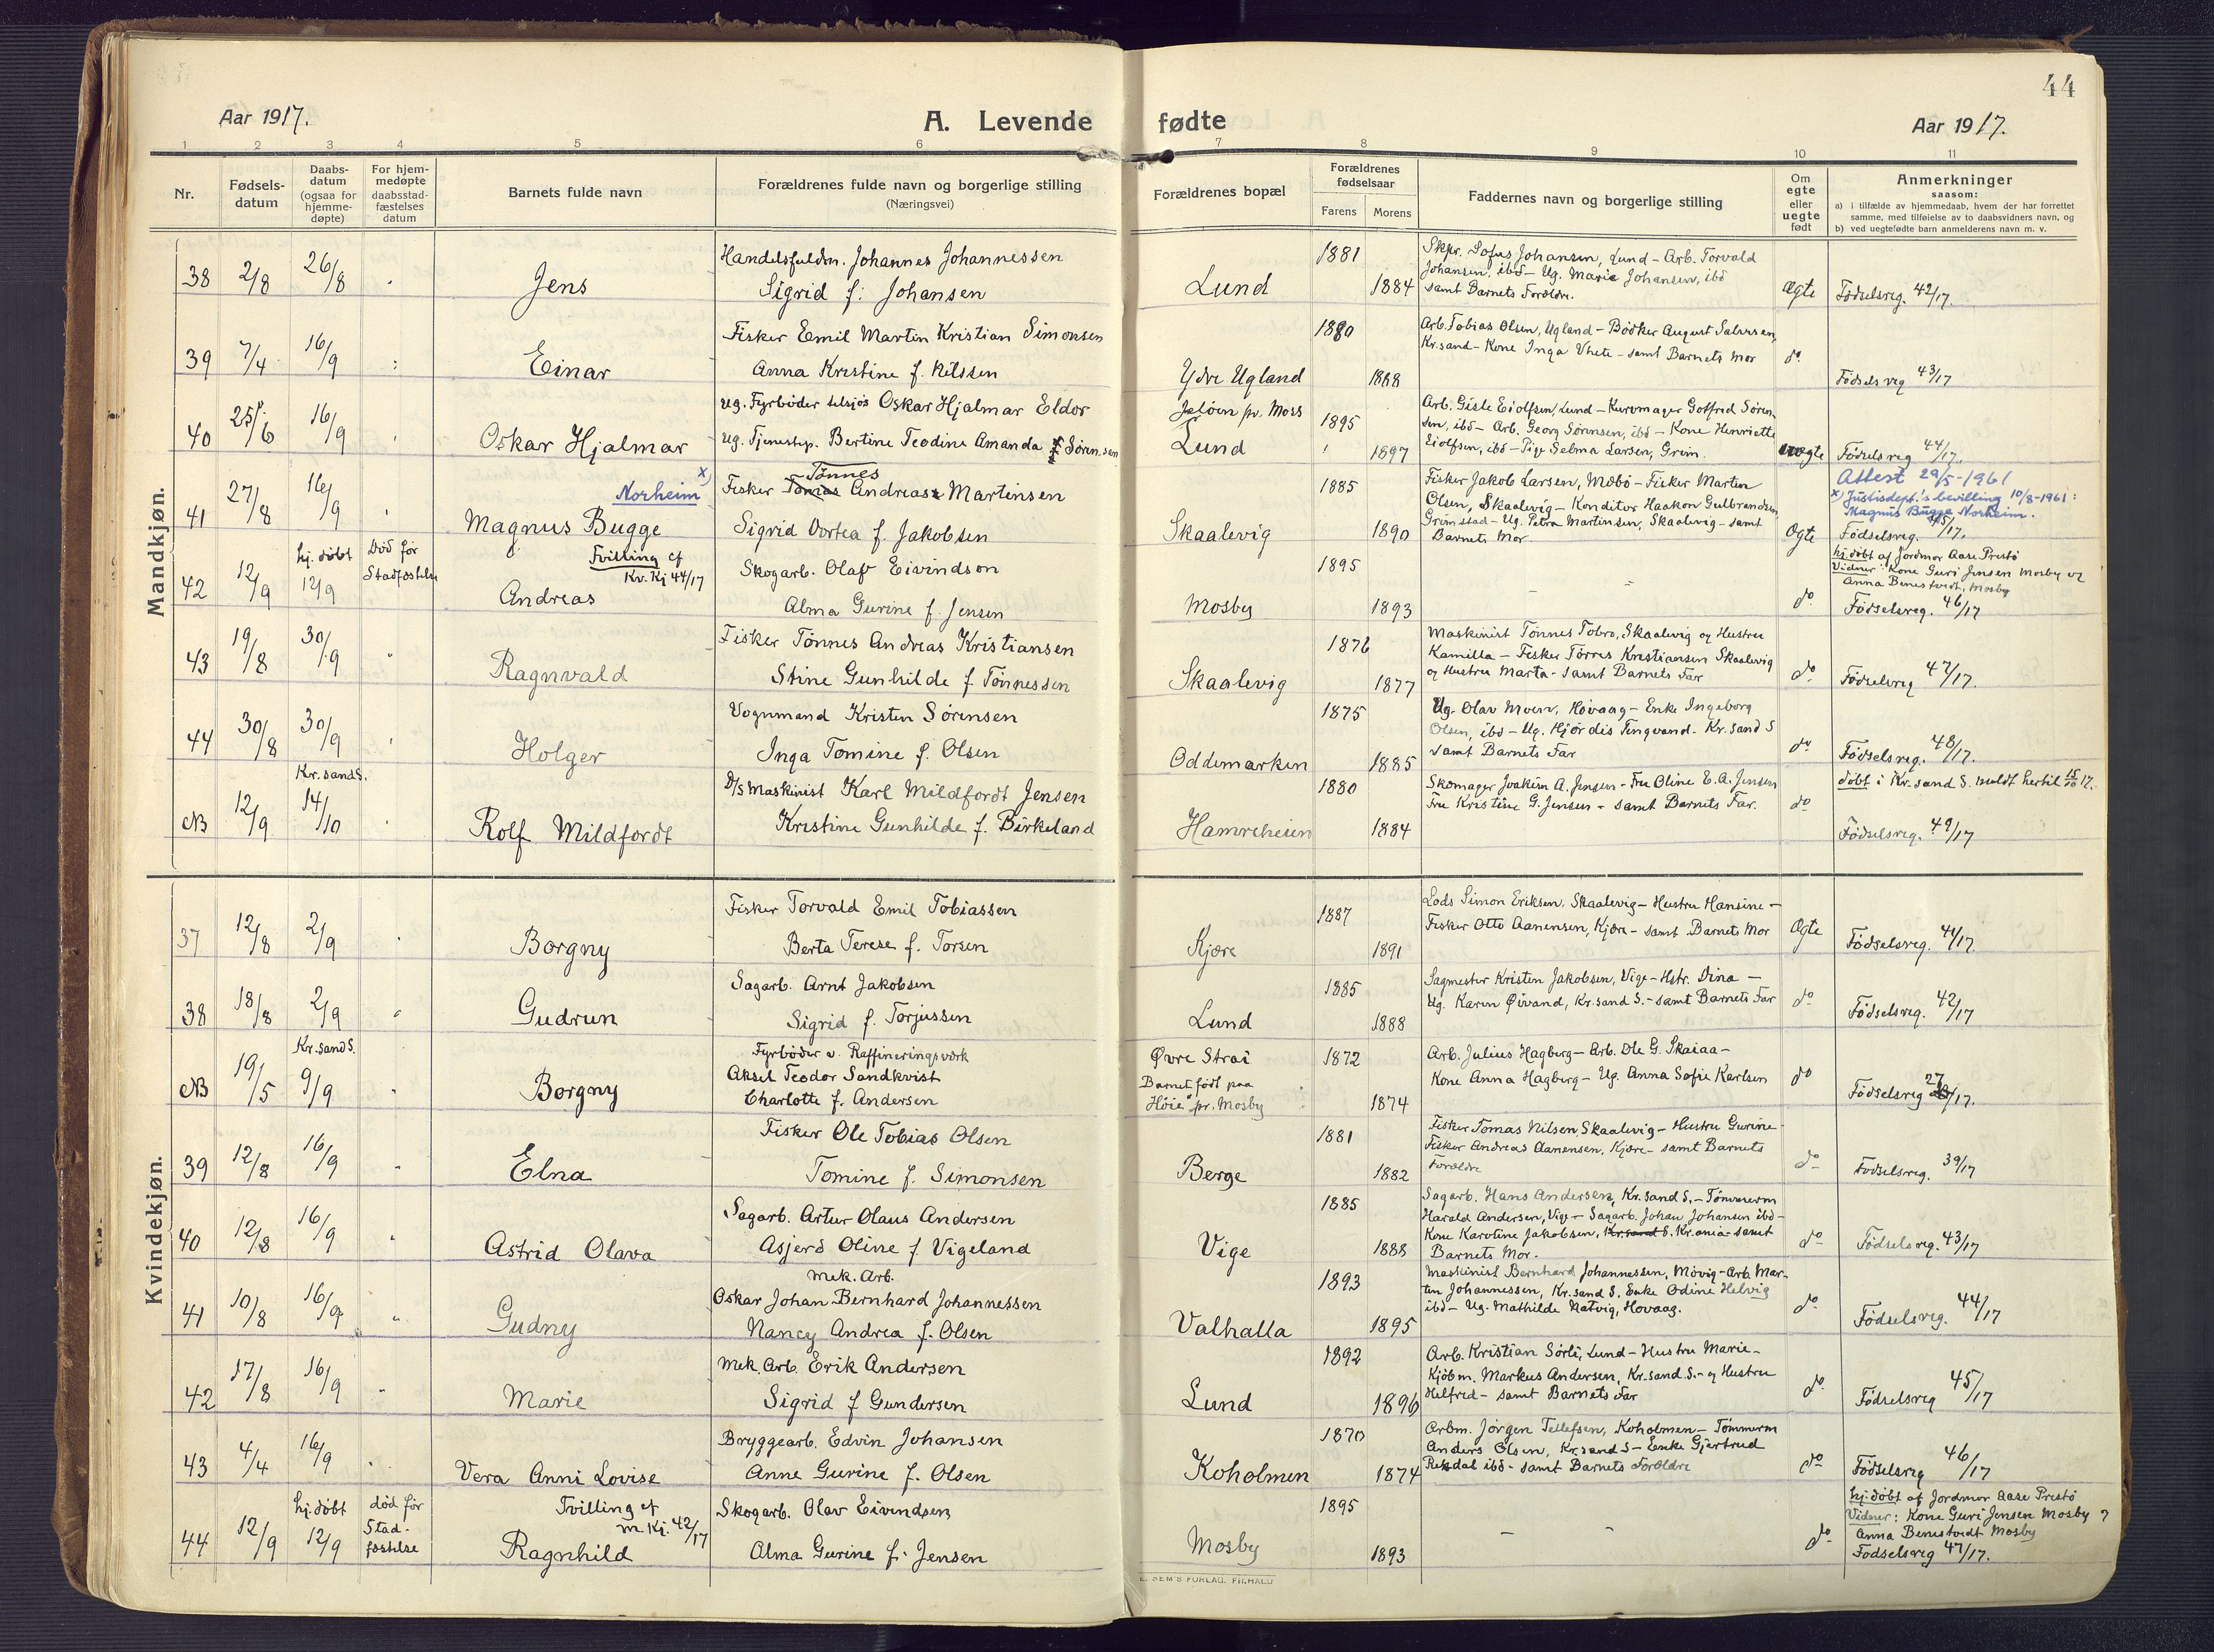 44
Aar 1917.
A. Levende fødte
Aar 1917.
1 2 3 4 5 6 7 8 9 10 11
Nr.
Fødsels-
datum
Daabs-
datum
(ogsaa for
hjemme-
døpte)
For hjem-
medøpte
daabsstad-
fæstelses
datum
Barnets fulde navn
Forældrenes fulde navn og borgerlige stilling
(Næringsvei)
Forældrenes bopæl
Forældrenes
fødselsaar
Farens Morens
Faddernes navn og borgerlige stilling
Om
egte
eller
uegte
født
Anmerkninger
saasom:
a) i tilfælde av hjemmedaab, hvem der har forrettet
samme, med tilføielse av to daabsvidners navn, og
b) ved uegtefødte barn anmelderens navn m. v.
Mandkjøn.
38 2/8 26/8 Jens
Handelsfuldm. Johannes Johannessen
Sigrid f. Johansen
Lund 1881 1884
Skpr. Sofus Johansen, Lund - Arb. Torvald
Johansen, ibd - Ug. Marie Johansen, ibd
samt Barnets Forældre.
Ægte Fødselsreg. 42/17.
39 7/4 16/9 Einar
Fisker Emil Martin Kristian Simonsen
Anna Kristine f. Nilssen
Ydre Ugland 1880 1888
Arb. Tobias Olsen, Ugland - Bødker August Salvesen,
Kr.sand - Kone Inga Vhete - samt Barnets Mor
do. Fødselsreg 43/17
40 25/6 16/9 Oskar Hjalmar
Ug. Fyrbøder tilsjøs Oskar Hjalmar Eldor
Ug. Tjenestep. Bertine Teodine Amanda Sørensen
Jeløen pr. Moss
Lund 1895 1897
Arb. Gisle Eiolfsen, Lund - Kurvmager Gotfred Søren-
sen, ibd - Arb. Georg Sørensen, ibd - Kone Henriette
Eiolfsen, ibd - Pige Selma Larsen, Grim.
uægte Fødselsreg 44/17.
41 27/8 16/9
Norheim x)
Magnus Bugge
Tønnes
Fisker Tomas Andreas Martinsen
Sigrid Dortea f. Jakobsen
Skaalevig 1885 1890
Fisker Jakob Larsen, Mæbø - Fisker Martin
Olsen, Skaalevig - Konditor Haakon Gulbrandsen,
Grimstad - Ug. Petra Martinsen, Skaalevig - samt
Barnets Mor.
Ægte
Attest 29/5-1961
x) Justisdept.'s bevilling 10/8-1961:
Magnus Bugge Norheim.
Fødselsreg. 45/17.
42 12/9
hj. døbt
12/9
Død før
Stadfæstelse
Tvilling cf
Kv. Kj 44/17
Andreas
Skogarb. Olaf Eivindson
Alma Gurine f. Jensen
Mosby 1895 1893
do.
hj. døbt af Jordmor Aase Prestø
Vidner: Kone Guri Jensen Mosby og
Anna Benestvedt, Mosby
Fødselsreg. 46/17
43 19/8 30/9 Ragnvald
Fisker Tønnes Andreas Kristiansen
Stine Gunhilde f Tønnessen
Skaalevig 1876 1877
Maskinist Tønnes Tobro, Skaalevig og Hustru
Kamilla - Fisker Tørres Kristiansen Skaalevig
og Hustru Marta - samt Barnets Far
do. Fødselsreg 47/17.
44 30/8 30/9 Holger
Vognmand Kristen Sørensen
Inga Tomine f. Olsen
Oddemarken 1875 1885
Ug. Olav Moen, Høvaag - Enke Ingeborg
Olsen, ibd - Ug. Hjørdis Tingvand. Kr.sand S
samt Barnets Far
do. Fødselsreg. 48/17.
NB 12/9
Kr.sand S.
14/10
Rolf Mildfordt
D/s Maskinist Karl Mildfordt Jensen
Kristine Gunhilde f. Birkeland
Hamreheien 1880 1884
Skomager Joakim A. Jensen - Fru Oline E. A. Jensen
Fru Kristine G. Jensen - samt Barnets Far.
do
døbt i Kr.sand S. meldt hertil 15/10 17.
Fødselsreg. 49/17
Kvindekjøn.
37 12/8 2/9 Borgny
Fisker Torvald Emil Tobiassen
Berta Terese f. Torsen
Kjære 1887 1891
Lods Simon Eriksen, Skaalevig - Hustru Hansine -
Fisker Otto Aanensen, Kjære - samt Barnets Mor
Ægte Fødselsreg. 41/17.
38 18/8 2/9 Gudrun
Sagarb. Arnt Jakobsen
Sigrid f. Torjussen
Lund 1885 1888
Sagmester Kristen Jakobsen, Vige - Hstr. Dina -
Ug. Karen Øivand, Kr.sand S. - samt Barnets Far
do. Fødselsreg. 42/17
NB 19/5
Kr.sand S.
9/9
Borgny
Fyrbøder v. Raffineringsværk
Aksel Teodor Sandkvist
Charlotte f. Andersen
Øvre Strai
Barnet født paa
Høie pr. Mosby
1872 1874
Arb. Julius Hagberg - Arb. Ole G. Skaiaa -
Kone Anna Hagberg - Ug. Anna Sofie Karlsen
do Fødselsreg 27/17.
39 12/8 16/9 Elna
Fisker Ole Tobias Olsen
Tomine f. Simonsen
Berge 1881 1882
Fisker Tomas Nilsen Skaalevig - Hustru Gurine -
Fisker Andreas Aanensen, Kjære - samt Barnets
Forældre
do. Fødselsreg. 39/17
40 12/8 16/9 Astrid Olava
Sagarb. Artur Olaus Andersen
Asjerd Oline f. Vigeland
Vige 1885 1888
Sagarb. Hans Andersen, Kr.sand S. - Tømmerm
Harald Andersen, Vige - Sagarb. Johan Johansen ibd -
Kone Karoline Jakobsen, Kr.sand S. Kr.ania - samt
Barnets Mor.
do. Fødselsreg. 43/17
41 10/8 16/9 Gudny
Mek. Arb.
Oskar Johan Bernhard Johannessen
Nancy Andrea f. Olsen
Valhalla 1893 1895
Maskinist Bernhard Johannessen, Møvig - Arb. Mar-
tin Johannessen, Kr.sand S. Enke Odine Helvig
ibd - Ug. Mathilde Natvig, Hovaag.
do. Fødselsreg. 44/17
42 17/8 16/9 Marie
Mek. Arb. Erik Andersen
Sigrid f Gundersen
Lund 1892 1896
Arb. Kristian Sørli, Lund - Hustru Marie -
Kjøbm. Markus Andersen, Kr.sand.S. - og Hustru
Helfred - samt Barnets Far
do. Fødselsreg 45/17
43 4/4 16/9 Vera Anni Lovise
Bryggearb. Edvin Johansen
Anne Gurine f. Olsen
Koholmen 1870 1874
Arbm. Jørgen Tellefsen, Koholmen - Tømmerm
Anders Olsen, Kr.sand S - Enke Gjertrud
ibd - samt Barnets Forældre
do. Fødselsreg 46/17
44 12/9
hj. døbt
12/9
død før
Stad-
fæstelse
Tvilling cf
M. Kj. 42/17
Ragnhild
Skogarb. Olav Eivindsen
Alma Gurine f. Jensen
Mosby 1895 1893
do.
hj. døbt af Jordmor Aase Prestø
Vidner: Kone Guri Jensen Mosby og
Anna Benestvedt Mosby
Fødselsreg 47/17.
E. SEM'S FORLAG. FR.HALD